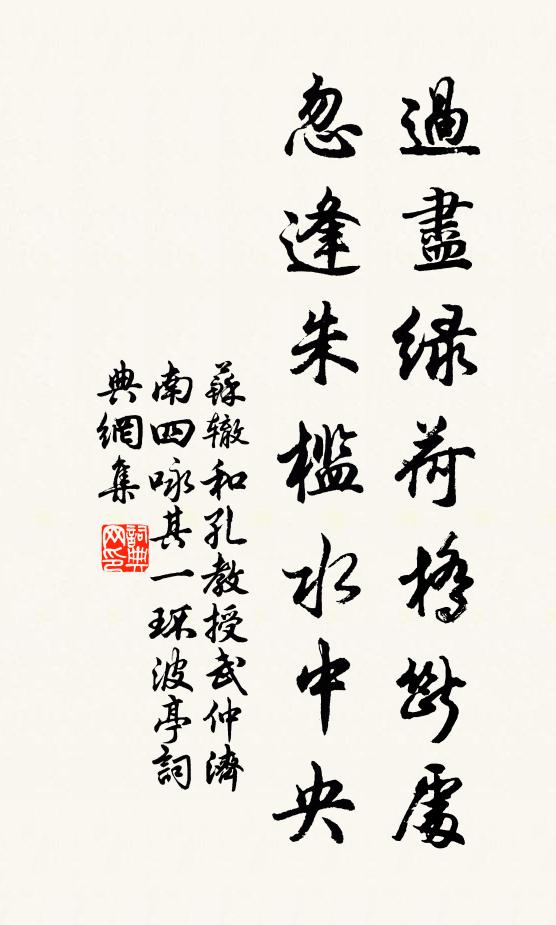 過盡緑荷橋斷處
忽逢朱檻水中央
蘇辙和孔教授武仲濟
南四咏其一環波亭詞
典網集
詞典网印